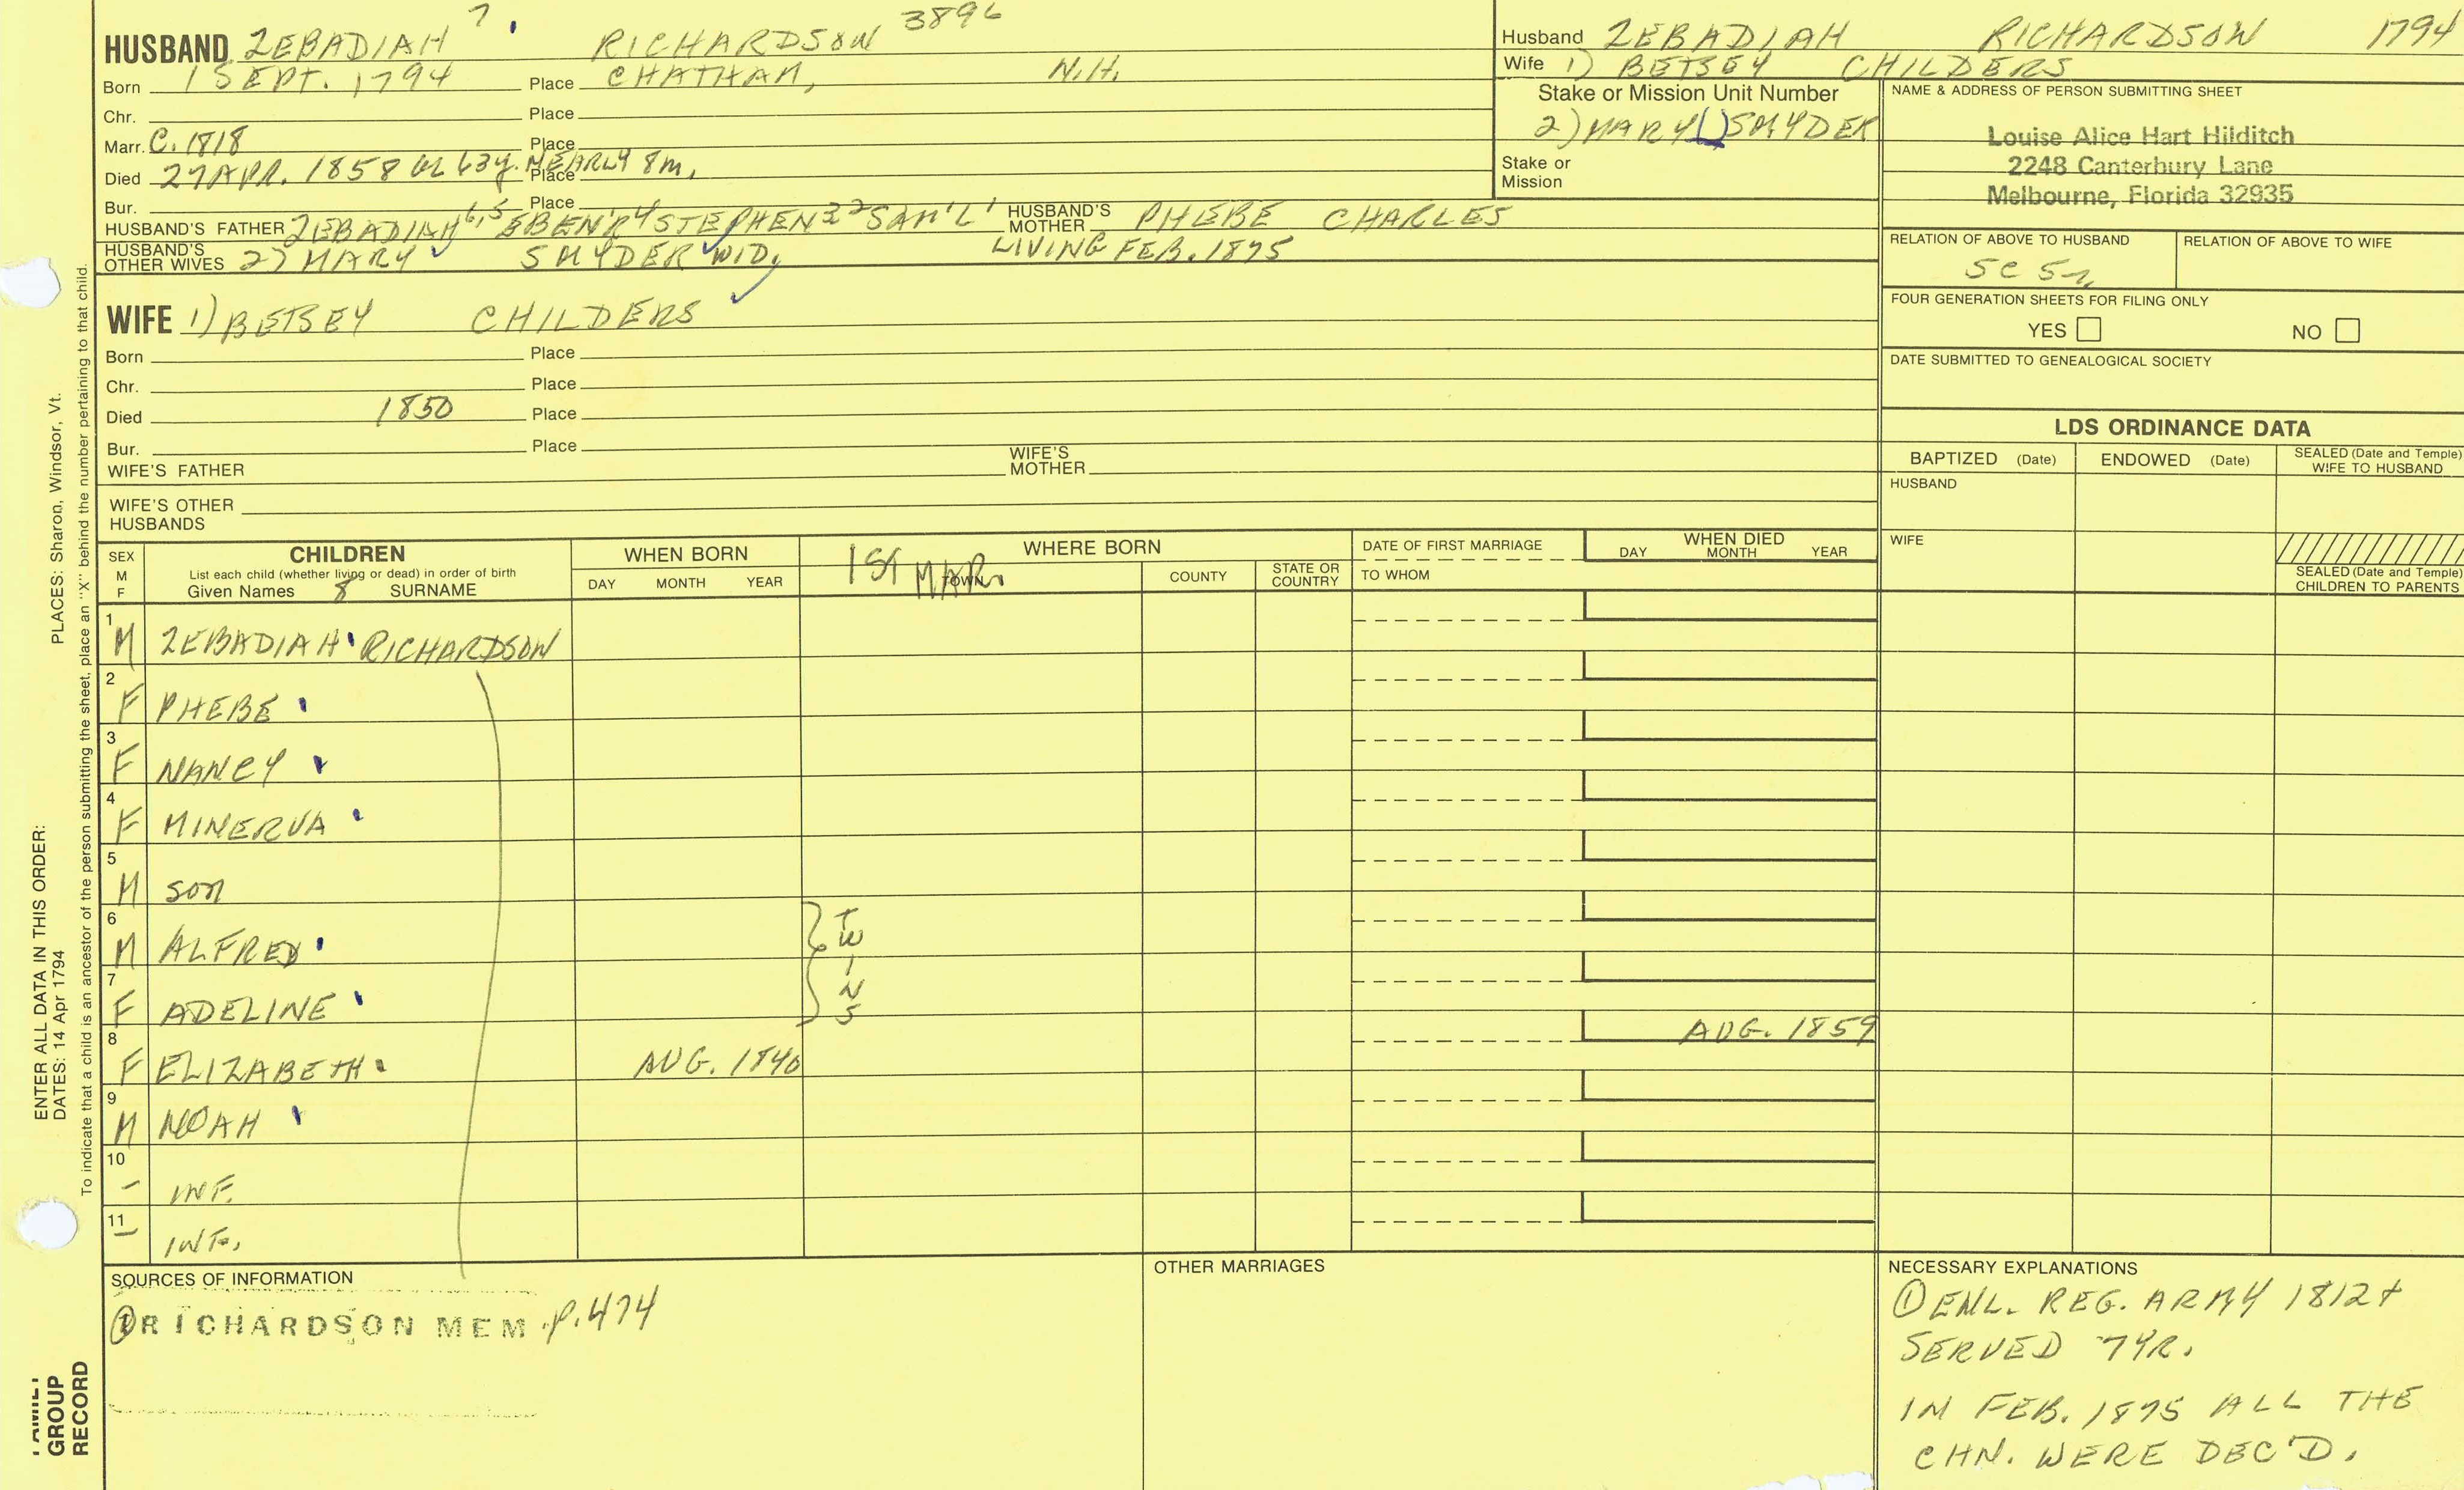 7. 3896
HUSBAND ZEBADIAH RICHARDSON
Born 1 SEPT. 1794 Place CHATHAM, N.H.
Chr. Place
Marr. C. 1818 Place
Died 27 APR. 1858 63y. NEARLY 8m. Place
Bur. Place
HUSBAND'S FATHER ZEBADIAH 6,5 EBEN'R 4 STEPHEN 3 2 SAM'L 1 HUSBAND'S MOTHER PHEBE CHARLES
HUSBAND'S OTHER WIVES 2) MARY SNYDER WID. LIVING FEB. 1875
WIFE 1) BETSEY CHILDERS
Born Place
Chr. Place
Died 1850 Place
Bur. Place
WIFE'S FATHER WIFE'S MOTHER
WIFE'S OTHER HUSBANDS
Husband ZEBADIAH RICHARDSON 1794
Wife 1) BETSEY CHILDERS
Stake or Mission Unit Number
2) MARY ( ) SNYDER
Stake or
Mission
NAME & ADDRESS OF PERSON SUBMITTING SHEET
Louise Alice Hart Hilditch
2248 Canterbury Lane
Melbourne, Florida 32935
RELATION OF ABOVE TO HUSBAND RELATION OF ABOVE TO WIFE
5C 5r
FOUR GENERATION SHEETS FOR FILING ONLY
YES NO
DATE SUBMITTED TO GENEALOGICAL SOCIETY
LDS ORDINANCE DATA
BAPTIZED (Date) ENDOWED (Date) SEALED (Date and Temple) WIFE TO HUSBAND
HUSBAND
WIFE
SEALED (Date and Temple)
CHILDREN TO PARENTS
SEX M F
CHILDREN
List each child (whether living or dead) in order of birth
Given Names 8 SURNAME
WHEN BORN
DAY MONTH YEAR
WHERE BORN
1ST MAR.
TOWN COUNTY STATE OR COUNTRY
DATE OF FIRST MARRIAGE
TO WHOM
WHEN DIED
DAY MONTH YEAR
1 M ZEBADIAH RICHARDSON
2 F PHEBE
3 F NANCY
4 F MINERVA
5 M son
6 M ALFRED
7 F ADELINE
TWINS
8 F ELIZABETH AUG. 1840 AUG. 1859
9 M NOAH
10 – INF.
11 – INF.
SOURCES OF INFORMATION
① RICHARDSON MEM. p. 474
OTHER MARRIAGES
NECESSARY EXPLANATIONS
① ENL. REG. ARMY 1812 +
SERVED 7 YR.
IN FEB. 1875 ALL THE
CHN. WERE DEC'D.
ENTER ALL DATA IN THIS ORDER:
DATES: 14 Apr 1794 PLACES: Sharon, Windsor, Vt.
To indicate that a child is an ancestor of the person submitting the sheet, place an "X" behind the number pertaining to that child.
FAMILY
GROUP
RECORD